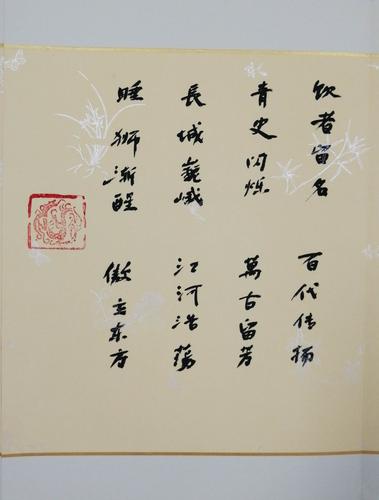 饮者留名 百代传扬
青史闪烁 萬古留芳
長城巍峨 江河浩蕩
睡狮渐醒 傲立东方